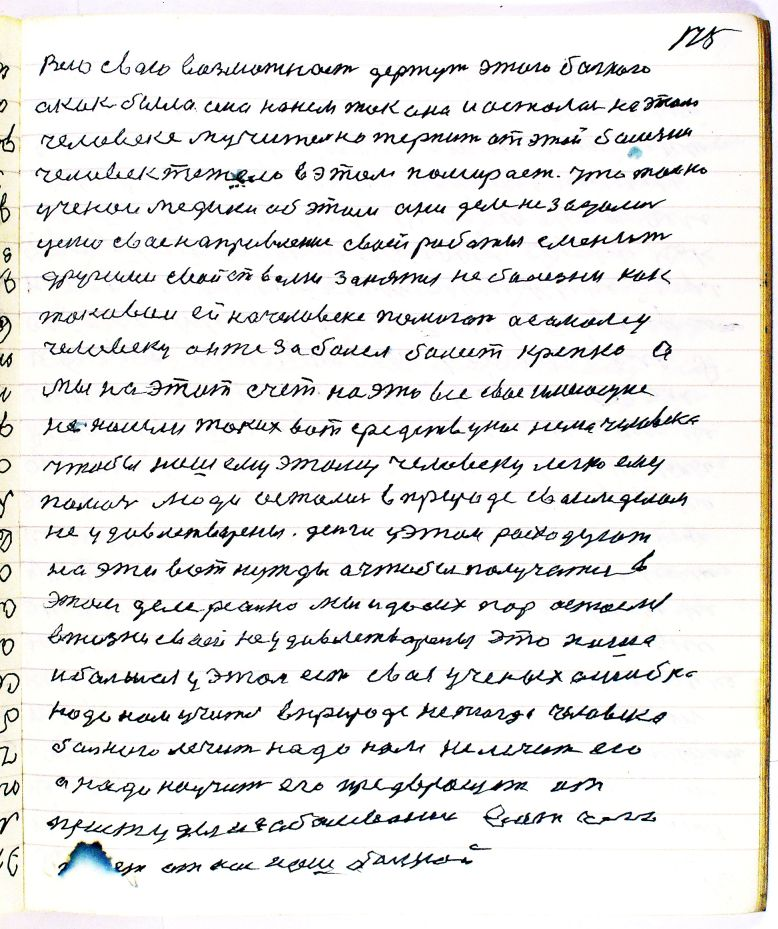 175
Всю сваю возможност держут этого болного
а как была она на нем так она и осталас на этом
человеке мучително терпит от этой болезни
человек тежело в этом помирает. что толко
ученои медики об этом они дели не задалис
цело свае направление своей работы сменит
другими свойствами занятия не болезни как
таковои ей на человеке помогат а самому
человеку он же заболел болеит крепко а
мы на этот счет на эть все свое имеющие
не нашли таких вот средств у нас нема человека
чтобы нашему этому человеку легко ему
помоч люди осталис в природе сваим делом
не удовлетварены. денги у этом расходуют
на эти вот нужды а чтобы получатся в
этом деле реално мы и до сих пор остаемс
в жизни своей не удовлетварены это наша
и болшая у этом ест свая ученых ошибка
надо нам учится в природе не тогда человека
болного лечит надо нам не лечит его
а надо научит его предвращат от
простуды и заболевании вот чего
ет от нас наш болной